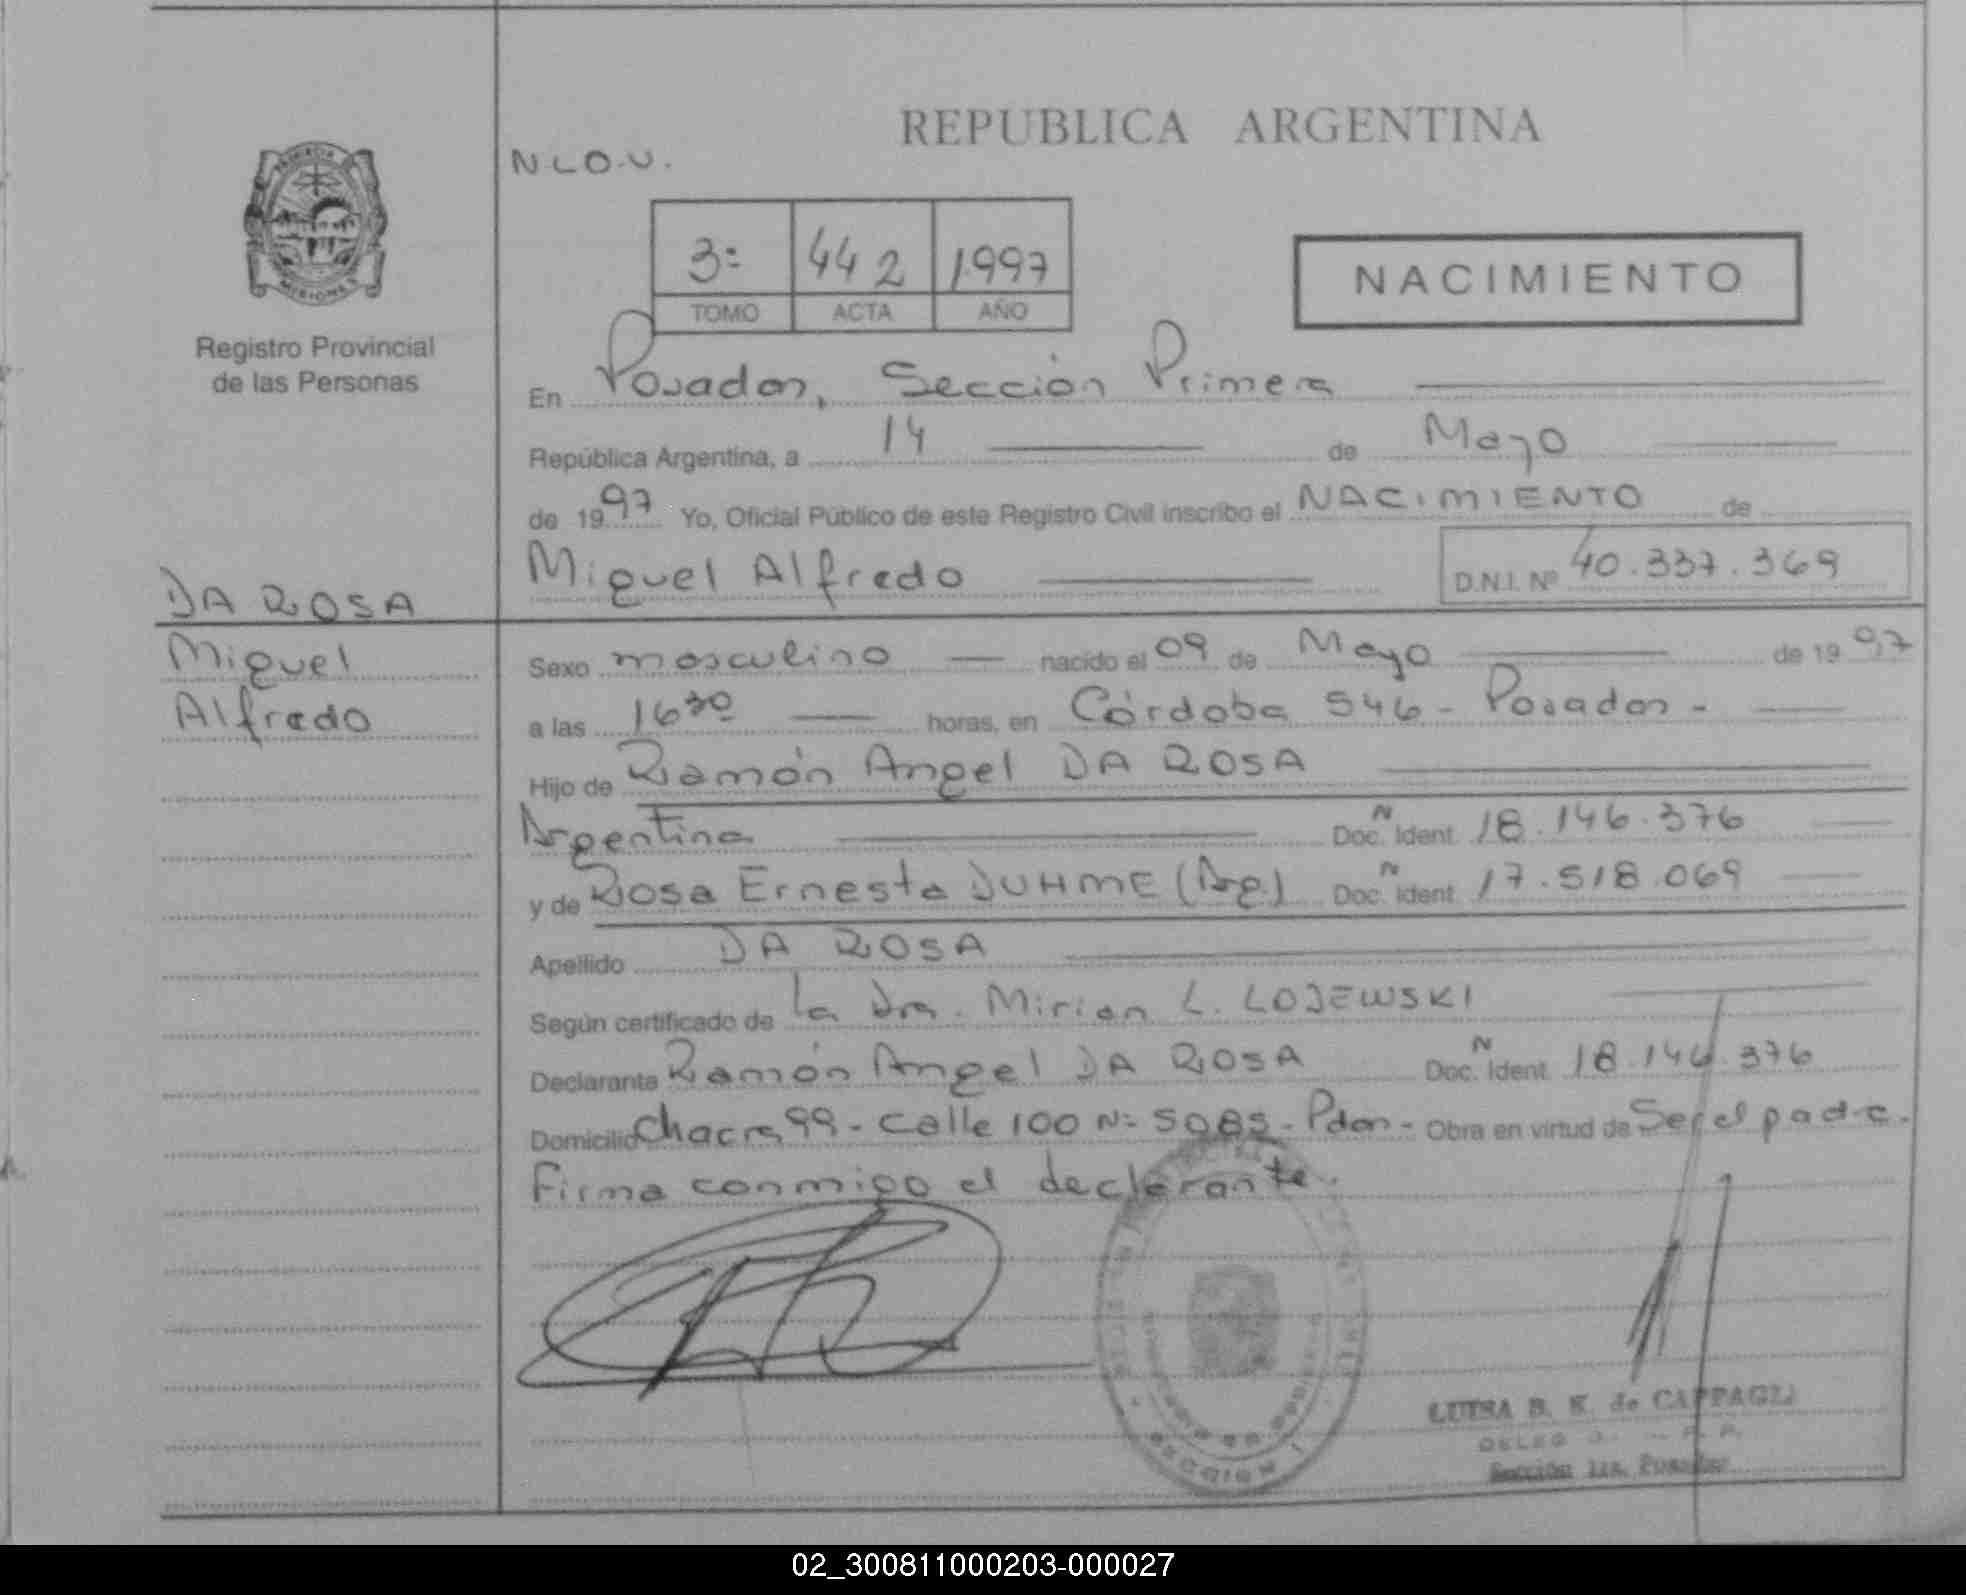 REPUBLICA ARGENTINA
N.L.O.U.
3º 442 1997
TOMO ACTA AÑO
NACIMIENTO
MISIONES
Registro Provincial
de las Personas
En Posadas, Sección Primera
República Argentina, a 14 de Mayo
de 1997 Yo, Oficial Público de este Registro Civil inscribo el NACIMIENTO de
Miguel Alfredo D.N.I. Nº 40.337.369
DA ROSA
Miguel
Alfredo
Sexo masculino nacido el 09 de Mayo de 1997
a las 16 30 horas, en Córdoba 546 - Posadas -
Hijo de Ramón Angel DA ROSA
Argentina Doc. N Ident. 18.146.376
y de Rosa Ernesta DUHME (Arg.) Doc. N Ident. 17.518.069
Apellido DA ROSA
Según certificado de la Dra. Mirian L. LOJEWSKI
Declarante Ramón Angel DA ROSA Doc. N Ident. 18.146.376
Domicilio Chacra 99 - Calle 100 Nº 5085 - Pdas - Obra en virtud de Ser el padre.
Firma conmigo el declarante.
LUISA B. K. de CAPPAGLI
Sección 1ra. Posadas
02_300811000203-000027